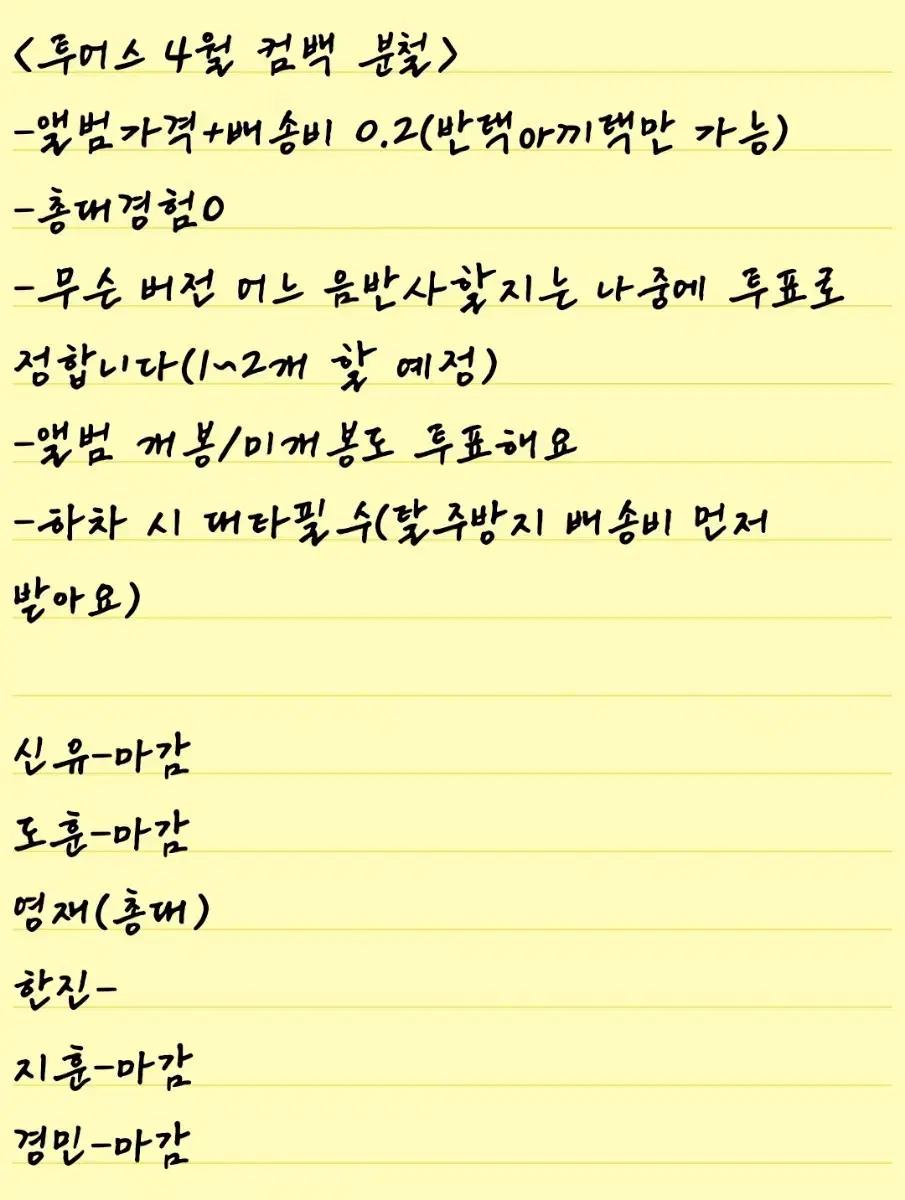 <투어스 4월 컴백 분철>
-앨범가격+배송비 0.2(반택아끼택만 가능)
-총대경험0
-무슨 버전 어느 음반사할지는 나중에 투표로
정합니다(1~2개 할 예정)
-앨범 개봉/미개봉도 투표해요
-하차 시 대타필수(탈주방지 배송비 먼저
받아요)
신유-마감
도훈-마감
영재(총대)
한진-
지훈-마감
경민-마감